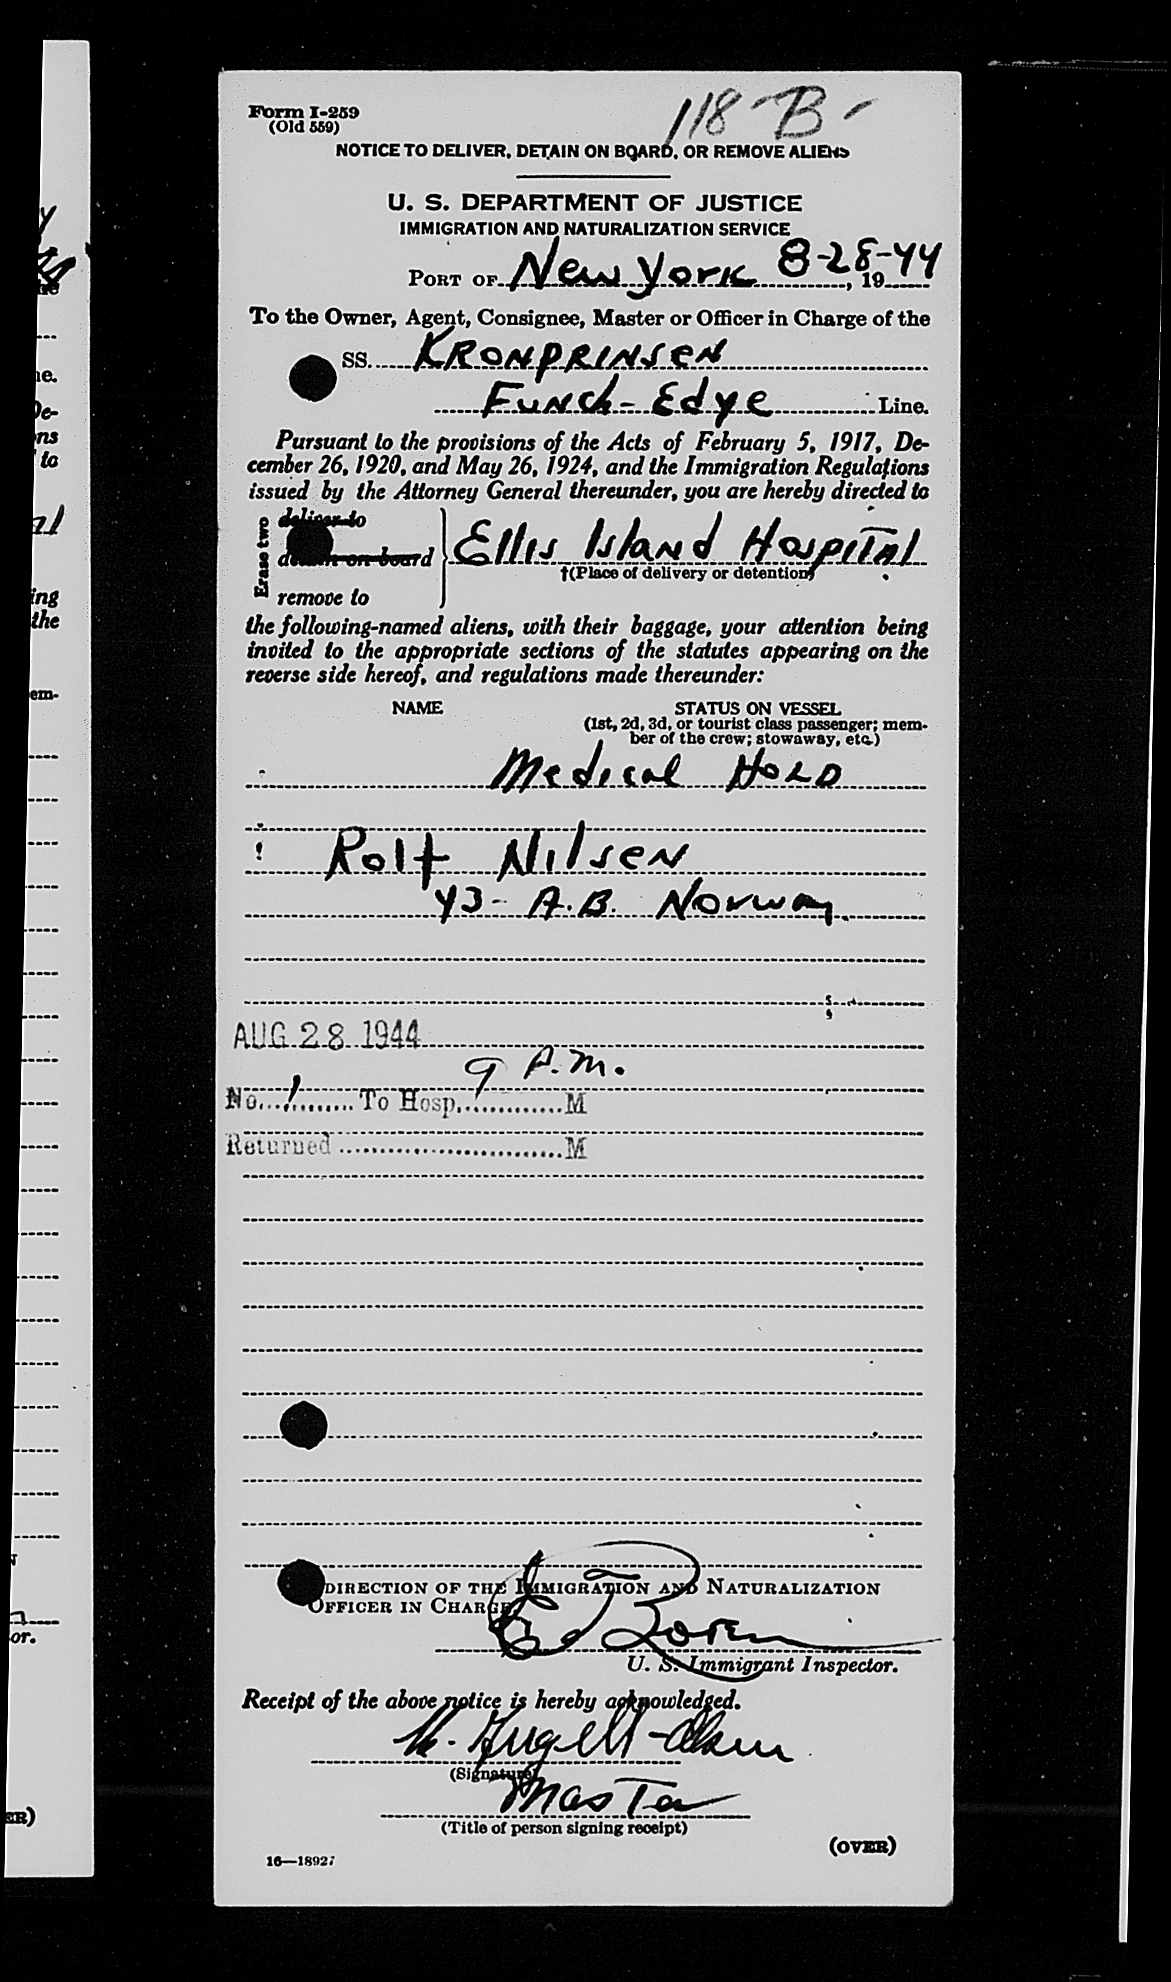 Form I-259
(Old 559)
118-B-
NOTICE TO DELIVER, DETAIN ON BOARD, OR REMOVE ALIENS
U. S. DEPARTMENT OF JUSTICE
IMMIGRATION AND NATURALIZATION SERVICE
PORT OF New York 8-28-44, 19
To the Owner, Agent, Consignee, Master or Officer in Charge of the
SS. KRONPRINSEN
Funch-Edye Line.
Pursuant to the provisions of the Acts of February 5, 1917, De-
cember 26, 1920, and May 26, 1924, and the Immigration Regulations
issued by the Attorney General thereunder, you are hereby directed to
Erase two
deliver to
detain on board
remove to
Ellis Island Hospital
†(Place of delivery or detention)
the following-named aliens, with their baggage, your attention being
invited to the appropriate sections of the statutes appearing on the
reverse side hereof, and regulations made thereunder:
NAME STATUS ON VESSEL
(1st, 2d, 3d, or tourist class passenger; mem-
ber of the crew; stowaway, etc.)
Medical Hold
Rolf Nilsen
43- A.B. Norway.
AUG 28 1944
9 P.M.
No. 1 To Hosp. M
Returned M
DIRECTION OF THE IMMIGRATION AND NATURALIZATION
OFFICER IN CHARGE
U. S. Immigrant Inspector.
Receipt of the above notice is hereby acknowledged.
(Signature)
Master
(Title of person signing receipt)
(OVER)
16—18927